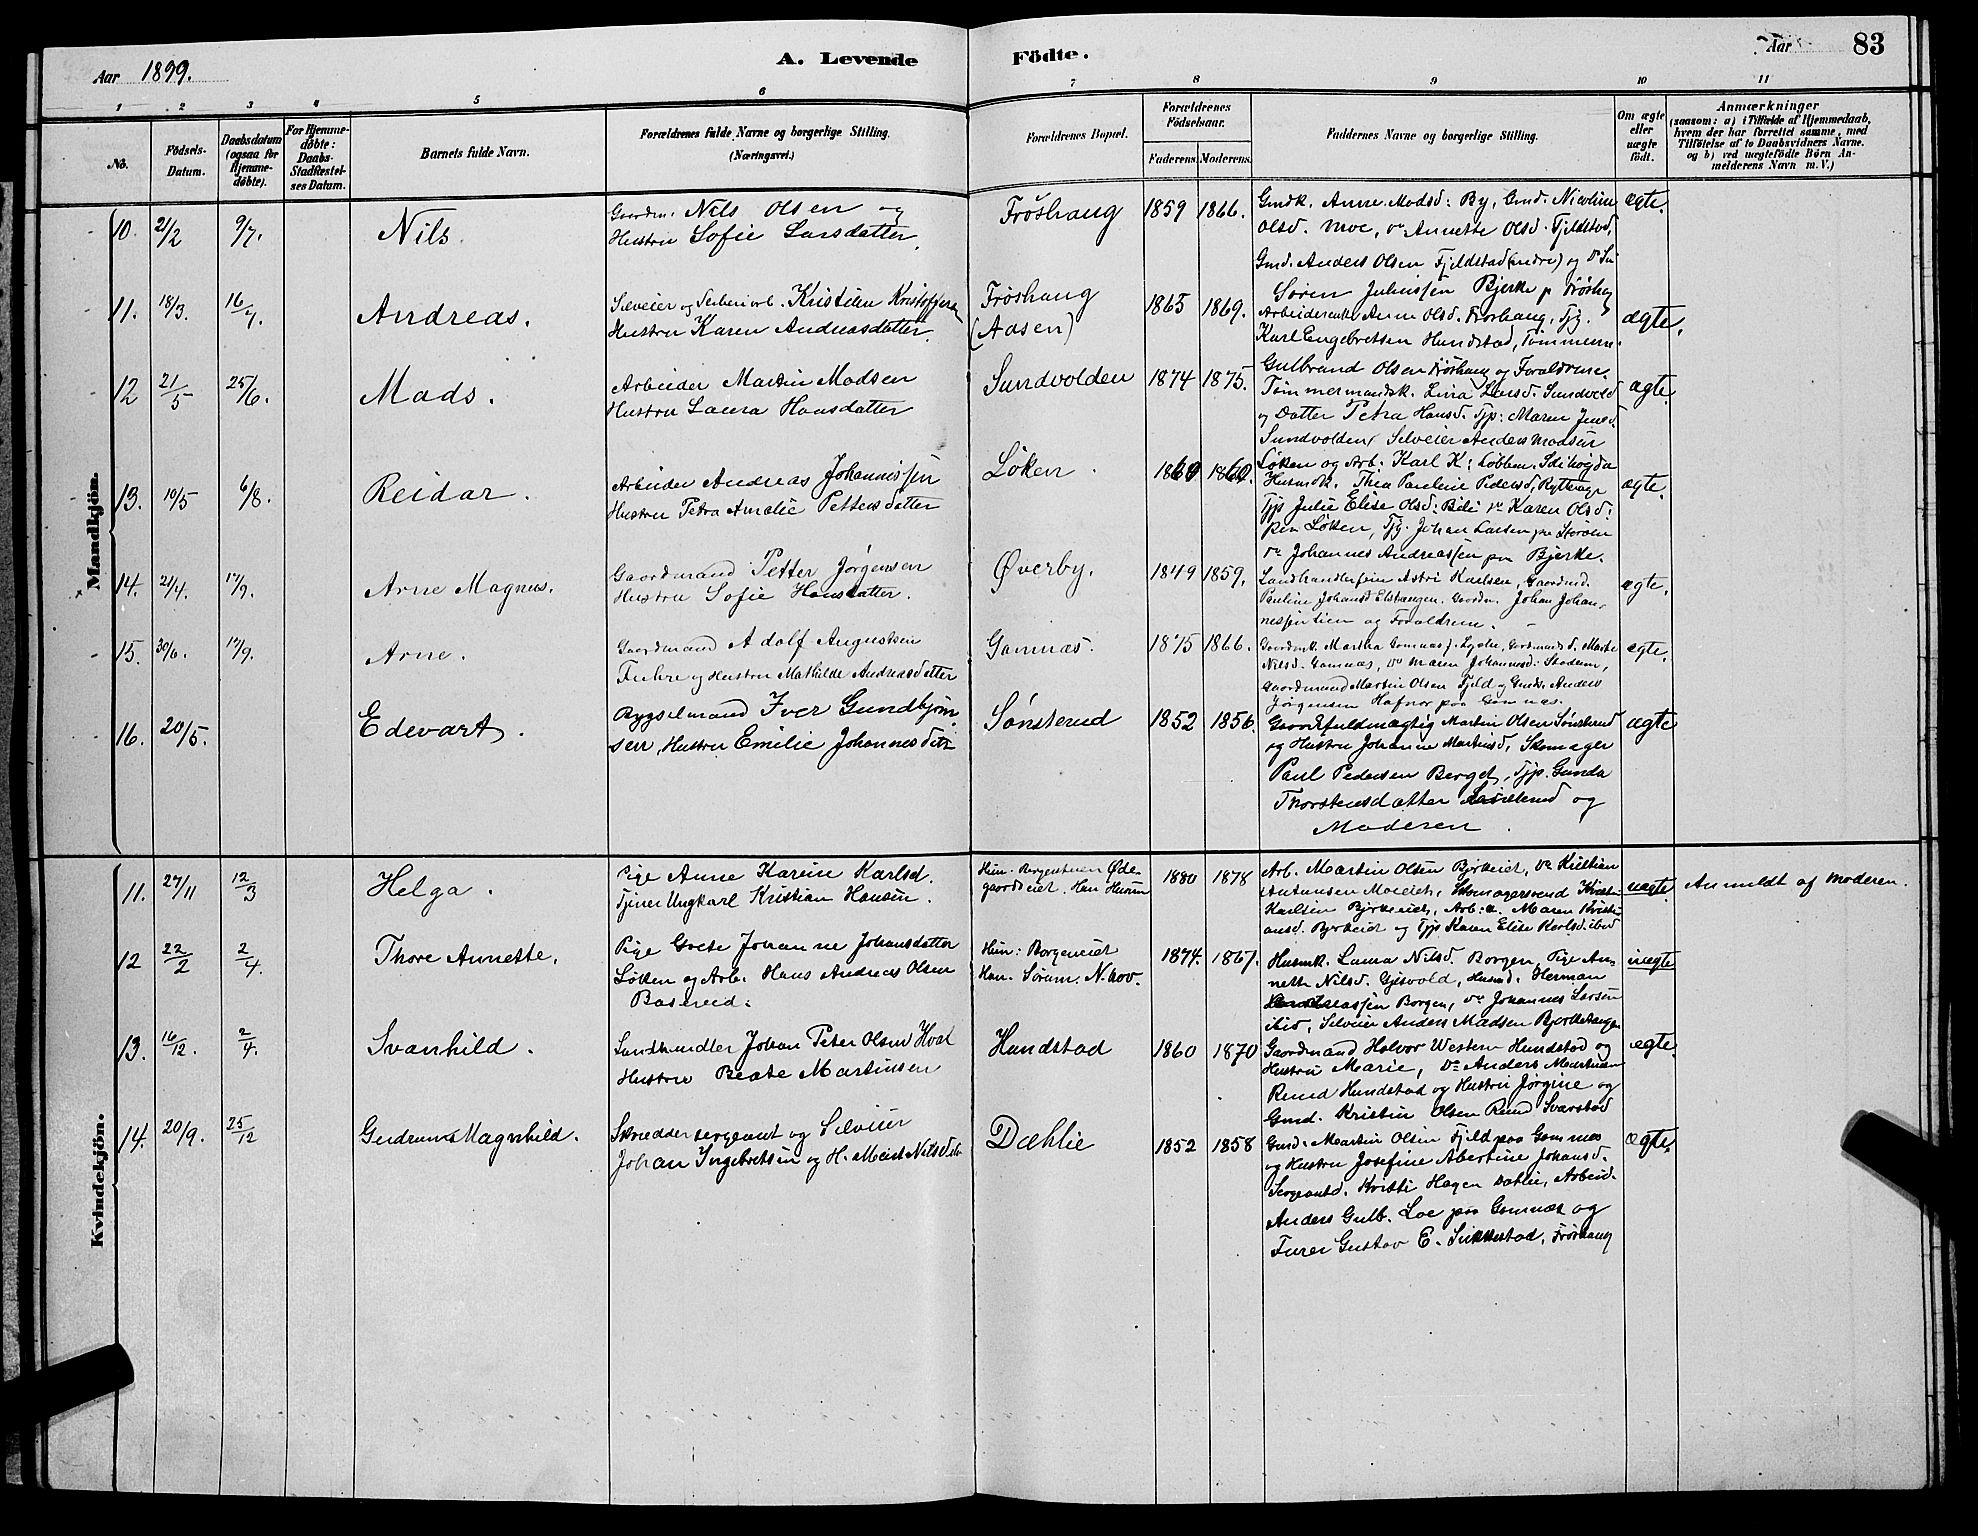 Aar 1899.
A. Levende Födte.
Aar 83
1 2 3 4 5 6 7 8 9 10 11
No.
Födsels-
Datum.
Daabsdatum
(ogsaa for
Hjemme-
döbte).
For Hjemme-
döbte:
Daabs-
Stadfestel-
ses Datum.
Barnets fulde Navn.
Forældrenes fulde Navne og borgerlige Stilling.
(Næringsvei.)
Forældrenes Bopæl.
Forældrenes
Födselsaar.
Faderens. Moderens.
Faddernes Navne og borgerlige Stilling.
Om ægte
eller
uægte
födt.
Anmærkninger
(saasom: a) i Tilfælde af Hjemmedaab,
hvem der har forrettet samme, med
Tilföielse af to Daabsvidners Navne.
og b) ved uægtefödte Börn An-
melderens Navn m. V.)
Mandkjön.
10. 21/2 9/7. Nils.
Gaardm. Nils Olsen og
Hustru Sofie Larsdatter.
Frøshaug 1859 1866.
Gmdk. Anne Madsd. By, Gmd. Nicoline
Olsd. Moe, Do Annette Olsd. Fjeldstad,
Gmd. Anders Olsen Fjeldstad (nedre) og
ægte.
11. 18/3. 16/7. Andreas.
Selveier og Kristian
Hustru Karen Andreasdatter.
Frøshaug
(Aasen)
1865 1869.
Søren Juliussen Bjerke p Frøshaug
Arbeiderenke Anne Olsd. Frøshaug, Tjg.
Karl Engebretsen Hundstad, Tømmerm.
Gulbrand Olsen Frøshaug og Forældrene.
ægte.
12 21/5 25/6. Mads.
Arbeider Martin Madsen
Hustru Laura Hansdatter
Sundvolden 1874 1875.
Tømmermandsk. Lina Larsd. Sundvold
og Datter Petra Hansd. Tjp: Maren Jensd.
Sundvolden, Selveier Anders Madsen
Løken og Arb: Karl K:
ægte.
13. 10/5 6/8. Reidar.
Arbeider Andreas Johannissen
Hustru Petra Amalie Pettersdatter
Løken. 1860 1860.
Husmk. Thea Pauline Pedersd,
Tjp Julie Elise Olsd: Bili Do Karen Olsd:
Løken, Tjg. Johan Larsen
Do Johannes Andreassen paa Bjerke.
ægte.
14. 21/4. 17/9. Arne Magnus.
Gaardmand Petter Jørgensen
Hustru Sofie Hansdatter.
Øverby. 1849 1859.
Astri Karlsen, Gaardmd.
Pauline Johansd Gaardm. Johan Johan-
og Forældrene.
ægte.
15. 30/6. 17/9. Arne.
Gaardmand Adolf Augustsen
Fuhre og Hustru Mathilde Andreasdatter
Gomnæs. 1875 1866.
Gaardmk. Martha Gomnæs f. Lydie, Gaardmands d. Marte
Nilsd. Gomnæs, Do Maren Johannesd:
Gaardmand Martin Olsen Fjeld og Gmds. Anders
Jørgensen Hafnor paa Gomnæs.
ægte.
16. 20/5. Edevart.
Bygselmand Iver Gundbjørn-
sen, Hustru Emilie Johannesdatr
Sønsterud 1852 1856.
Martin Olsen Sønsterud
og Hustru Johanne Martinsd. Skomager
Paul Pedersen Berget, Tjp. Gunda
Thorstensdatter og
Moderen.
ægte
Kvindekjön.
11. 27/11 12/3 Helga.
Pige Anne Karine Karlsd.
Tjener Ungkarl Kristian Hansen.
Hun: Øde-
gaardseiet. Han Husum
1880 1878
Arb. Martin Olsen Bjerkeiet, Do Kristian
Antonsen Moeiet, Skomagersvend
Karlsen Bjerkeiet, Arb:k. Maren Kristi-
ansd. Bjerkeiet og Tjp Karen Elise Karlsd. ibid
uægte. Anmeldt af Moderen.
12 22/2 2/4. Thore Annette.
Pige Grete Johanne Johansdatter
Løken og Arb. Hans Andreas Olsen

Hun: Borgeneiet
Han. Sørum. N.hov.
1874. 1867.
Husmk. Laura Nilsd. Borgen, Pige An-
nette Nilsd. Gjesvold, Husmd. Herman
Borgen, Do Johannes Larsen
ibid, Selveier Anders Madsen
uægte
13. 16/12. 2/4. Svanhild.
Landhandler Johan Peter Olsen
Hustru Beate Martinsen
Hundstad 1860 1870
Gaardmand Halvor Western Hundstad og
Hustru Marie, Do Anders Martinsen
Rund Hundstad og Hustru Jørgine og
Gmd. Kristin Olsen Rund Svarstad
ægte.
14. 20/9. 25/12 Gudrun Magnhild.
Skræddersergeant og Selveier
Johan Ingebretsen og H.
Dæhlie 1852 1858
Gmd. Martin Olsen Fjeld paa Gomnæs
og Hustru Josefine Abertine Johansd.
Sergeantd. Kristi Hagen Dæhlie, Arbeid.
Anders Gulb. Loe paa Gomnæs og
Furer Gustav E. Frøshaug
ægte.